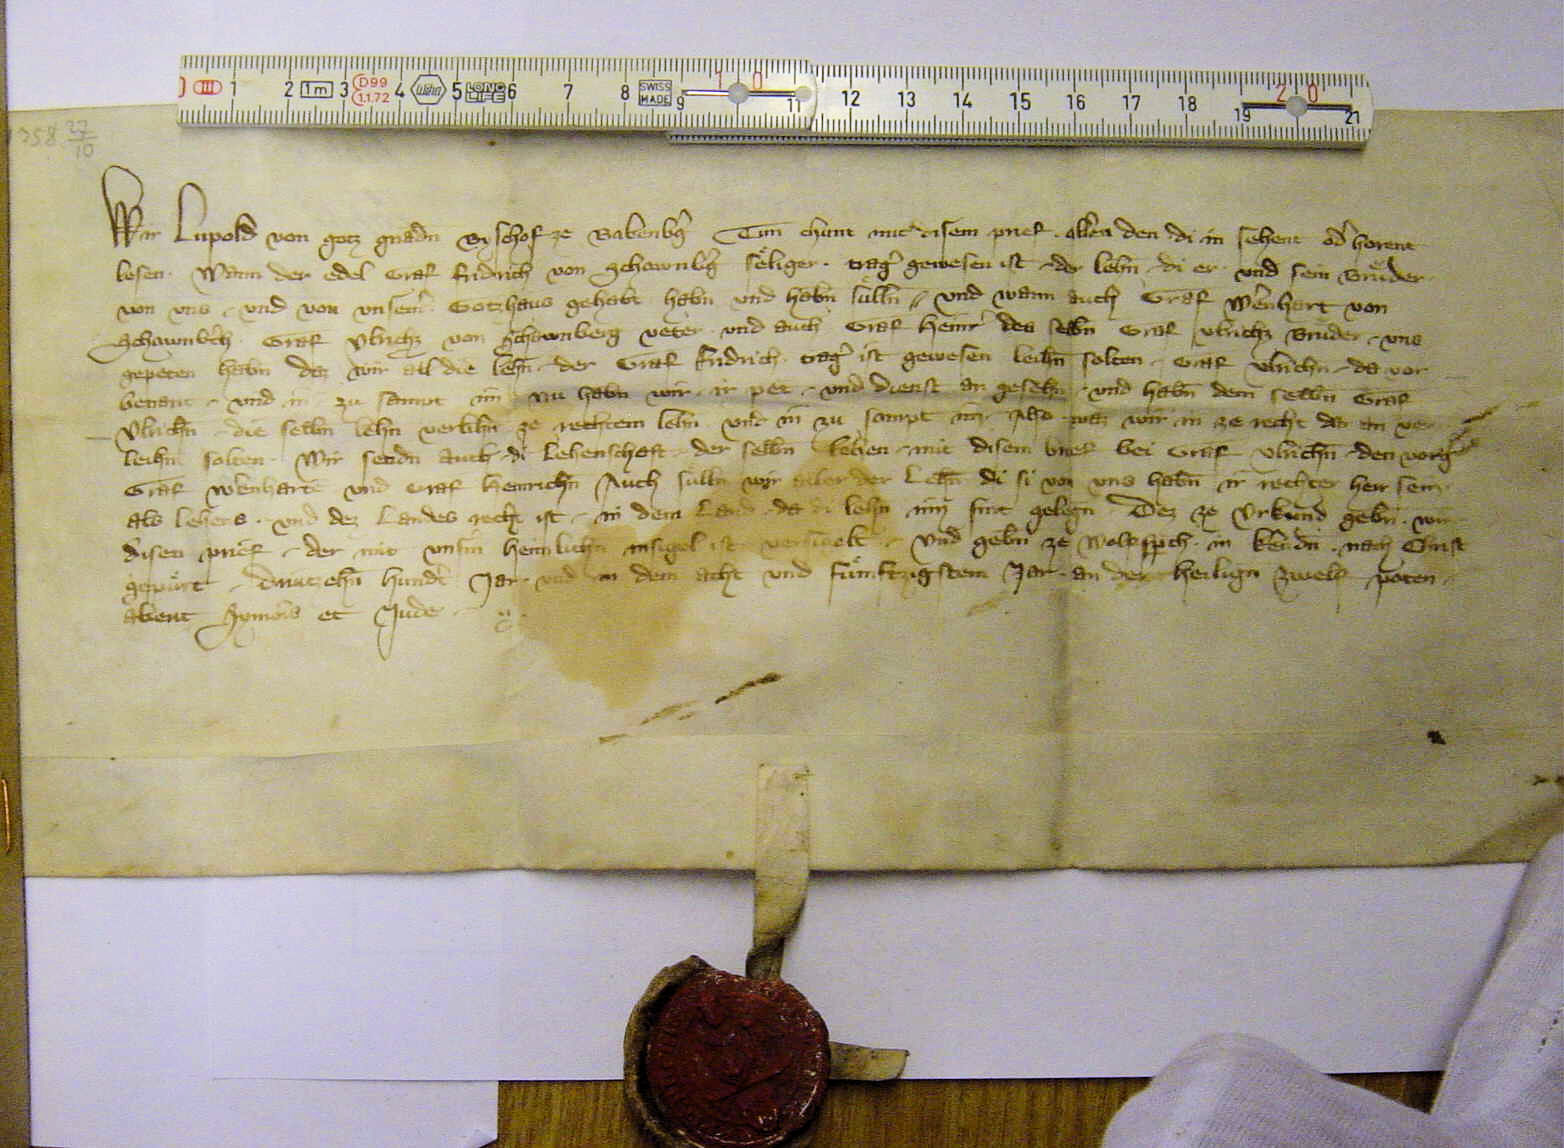 1 2 1m 3 D99 1.1.72 4 Wiha 5 LONG LIFE 6 7 8 SWISS MADE 9 1 0 11 12 13 14 15 16 17 18 19 2 0 21
1358 27/10
Wir Lupold von gotz gnadn Byschof ze Babenbg Tun chunt mit disem prief allen den di in sehent od horent
lesen. Wann der edel Graf fridrich von Schawnbg seliger trag gewesen ist der lehn di er und sein Bruder
von uns und von unserm Gotzhaus gehabt habn und habn sulln und wann auch Graf Wernhart von
Schawnbch Graf Ulrichz von Schawnberg veter und auch Graf Heinr des selbn Graf Ulrichz Bruder uns
gepeten habn daz wir al die lehn der Graf fridrich trag ist gewesen leihn solten Graf Ulrichn da vor
benant und in zu sampt im Nu habn wir ir pet und dienst an gesehn und habn dem selbn Graf
Ulrichn die selbn lehn verlihn ze rechtem lehn und in zu sampt im Also waz wir in ze recht dar an ver
leihn solten Wir sendn auch di Lehenschaft der selbn lehen mit disem brief bei Graf Ulrichn den vorg
Graf Wernharte und Graf Heinrichn Auch sulln wir aber der Lehn di si von uns habn ir rechter herr sein
als lehens und dez Landes recht ist in dem Land da di lehn inn sint gelegn Dez ze Urkund gebn wir
disen prief der mit unsm heimlichn insigel ist versigelt Und gebn ze Wolfsperch in kerndn nach Christ
gepurt Driutzehn hundt Jar und in dem acht und fumftzigstem Jar an der heilign zwelf poten
abent Symonis et Jude